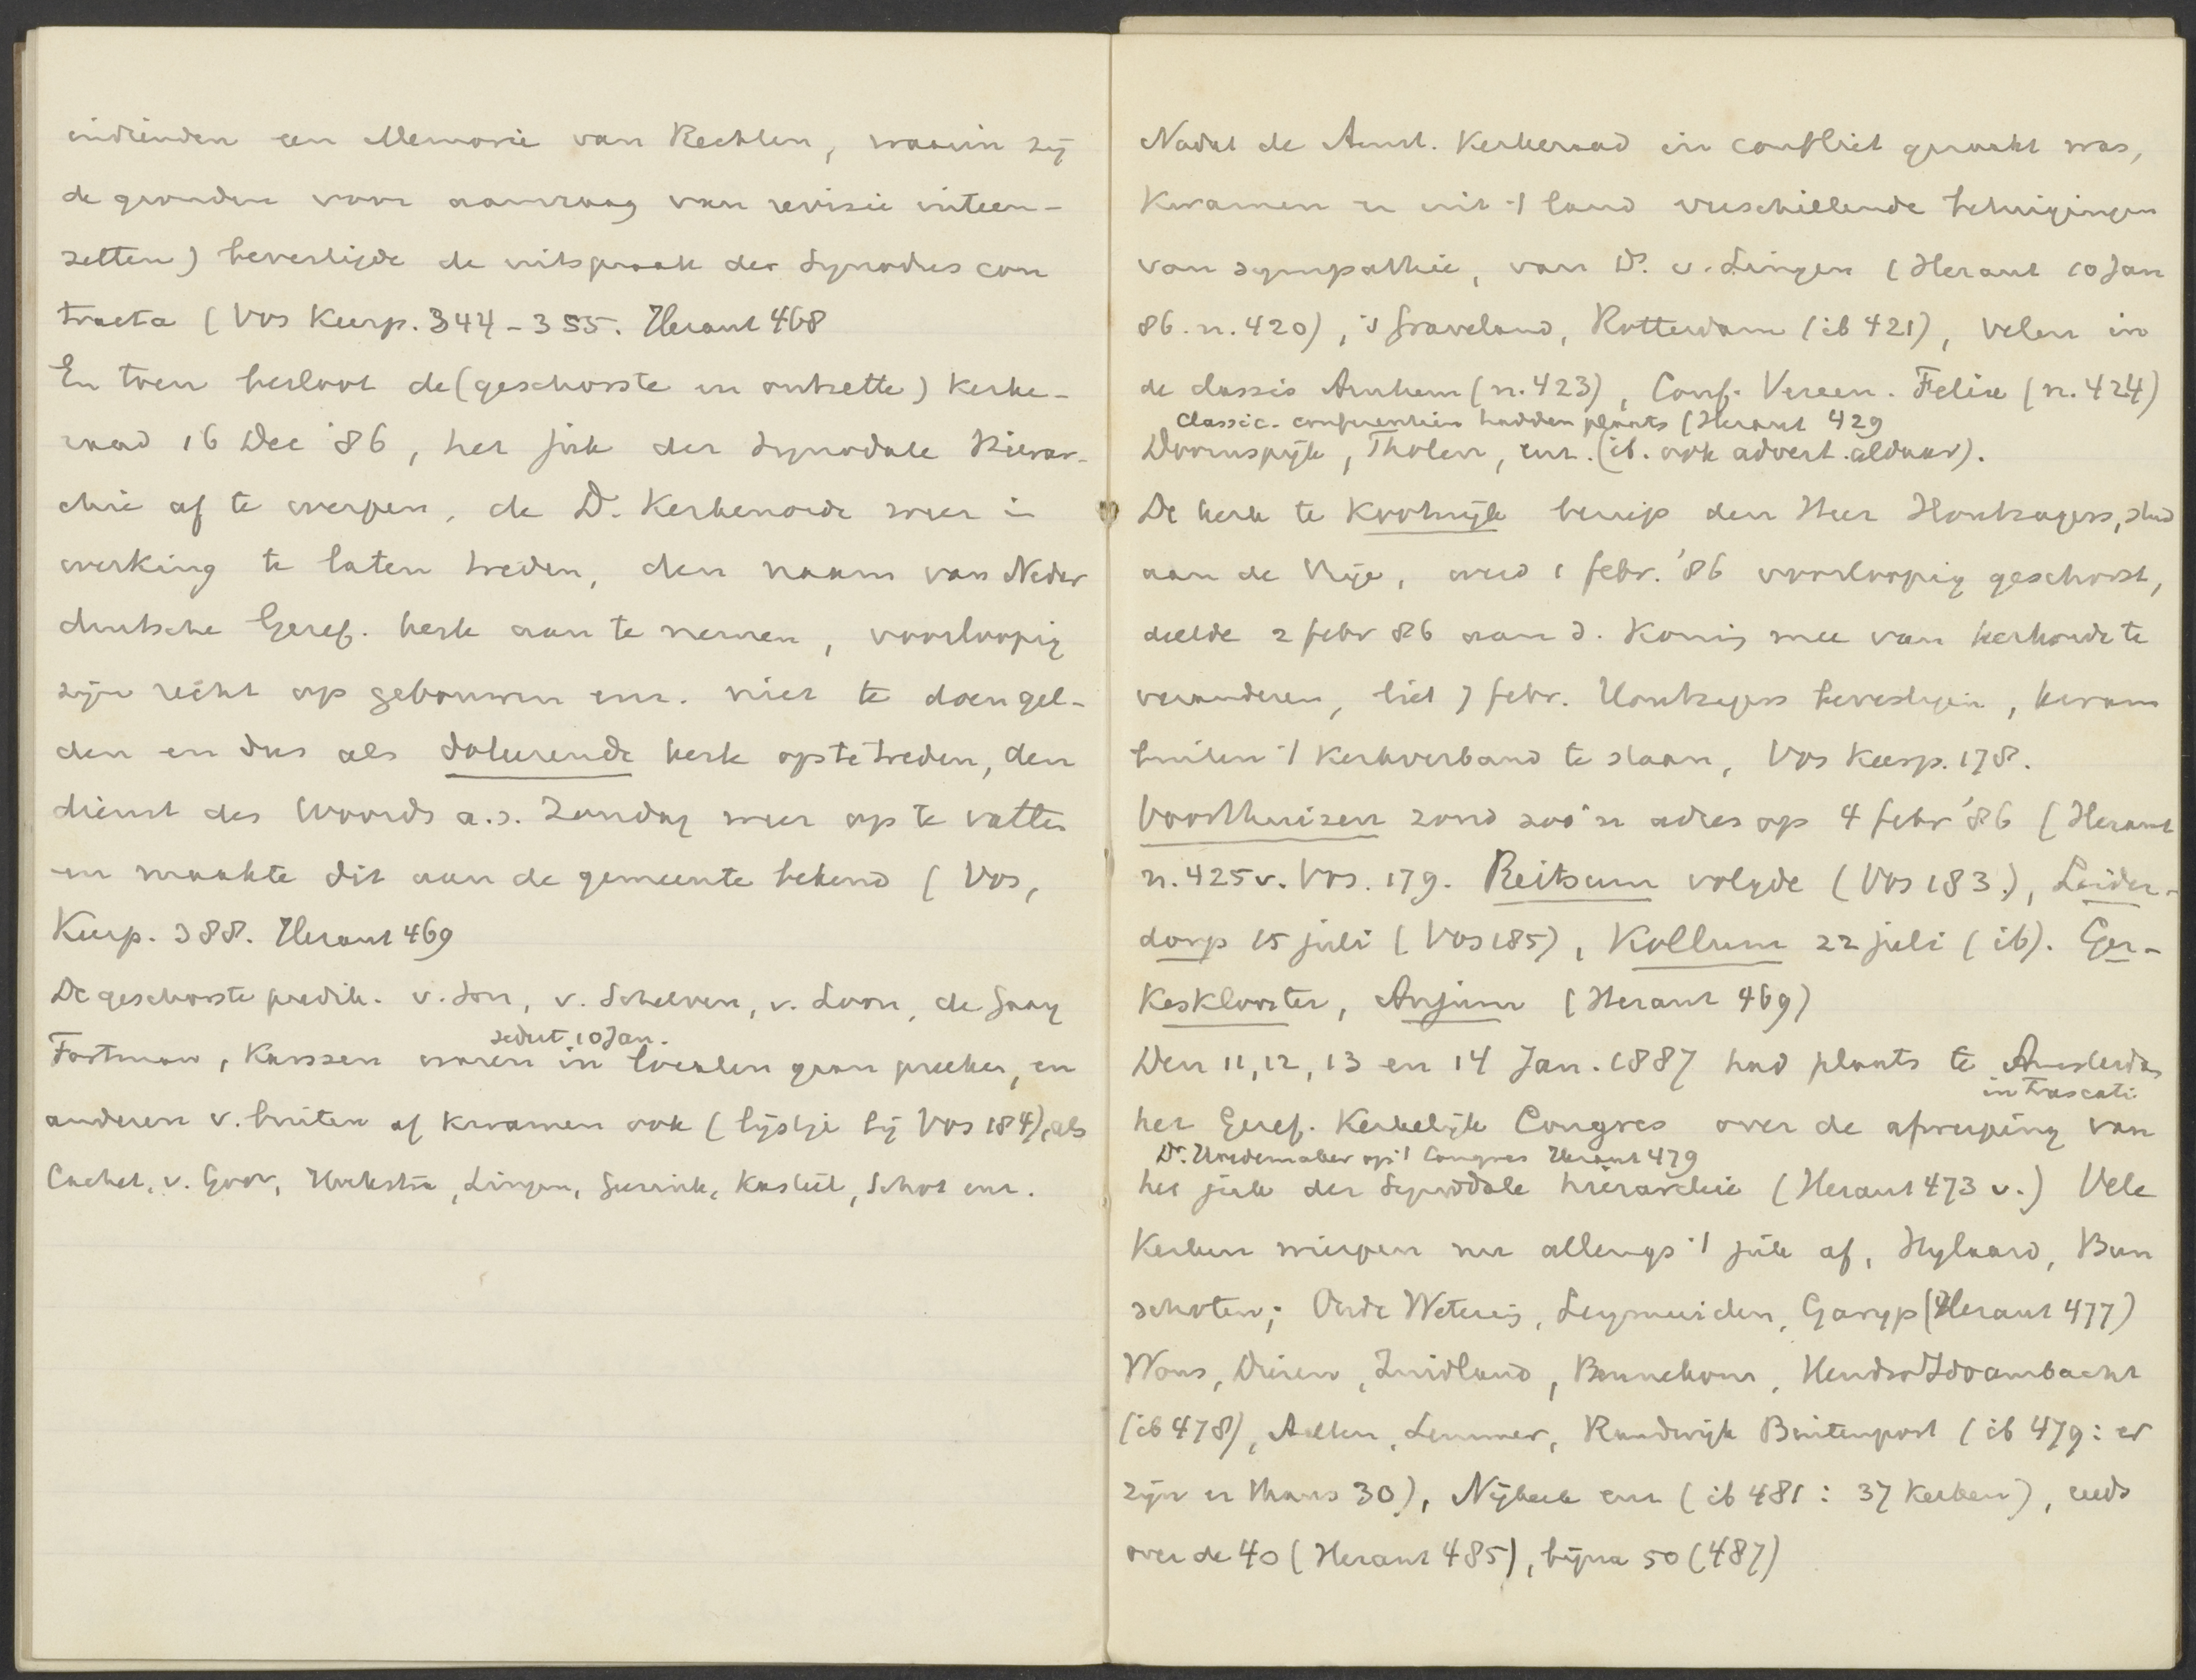 indienden een Memorie van Rechten, waarin zij
de gronden voor aanvraag van revisie uiteen-
zetten) bevestigde de uitspraak der Synodus con
tracta (Vos Keerp. 344-355. Heraut 468
En toen besloot de (geschorste en ontzette) kerke-
raad 16 Dec '86, het juk der Synodale Hierar-
chie af te werpen, de D. Kerkenorde weer in
werking te laten treden, den naam van Neder
duitsche Geref. kerk aan te nemen, voorloopig
zijn recht op gebouwen enz. niet te doen gel-
den en dus als dolerende kerk op te treden, den
dienst des Woords a.s. Zondag weer op te vatten
en maakte dit aan de gemeente bekend (Vos,
Keerp. 388. Heraut 469
De geschorste predik. v. Son, v. Schelven, v. Loon, de Gaay
sedert 10 Jan.
Fortman, Karssen waren in localen gaan preeken, en
anderen v. buiten af kwamen ook (lijstje bij Vos 184), als
Cachet, v. Goor, Hoekstra, Lingen, Gunnink, Kasteel, Schot enz.
Nadat de Amst. Kerkeraad in conflict geraakt was,
kwamen er uit 't land verschillende betuigingen
van sympathie, van Ds. v. Lingen (Heraut 10 Jan
86. n. 420), 's Graveland, Rotterdam (ib 421), velen in
de classis Arnhem (n. 423), Conf. Vereen. Felix (n. 424)
Classic. conferentien hadden plaats (Heraut 429
Doornspijk, Tholen, enz. (ib. ook advert. aldaar).
De kerk te Kootwijk beriep den Heer Houtzagers, stud
aan de Vrije, werd 1 febr. '86 voorloopig geschorst,
deelde 2 febr 86 aan d. Koning mee van kerkorde te
veranderen, liet 7 febr. Houtzagers bevestigen, kwam
buiten 't Kerkverband te staan, Vos Keerp. 178.
Voorthuizen zond zoo'n adres op 4 febr '86 (Heraut
n. 425 v. Vos. 179. Reitsum volgde (Vos 183.), Leider-
dorp 15 juli (Vos 185), Kollum 22 juli (ib). Ger-
keskloorter, Anjum (Heraut 469)
Den 11, 12, 13 en 14 Jan. 1887 had plaats te Amsterdam
in Frascati
het Geref. Kerkelijk Congres over de afwerping van
Dr. Wagenmaker op 't Congres Heraut 479
het juk der Synodale hierarchie (Heraut 473 v.) Vele
Kerken wierpen nu allengs 't juk af, Hylaard, Bun
schoten; Oude Wetering, Leymuiden, Garyp (Heraut 477)
Wons, Dieren, Zuidland, Bennekom, Hendrik Ido ambacht
(ib 478), Aalten, Lemmer, Randwijk Buitenpost (ib 479: er
zijn er thans 30), Nijkerk enz (ib 481: 37 kerken), reeds
over de 40 (Heraut 485), bijna 50 (487)